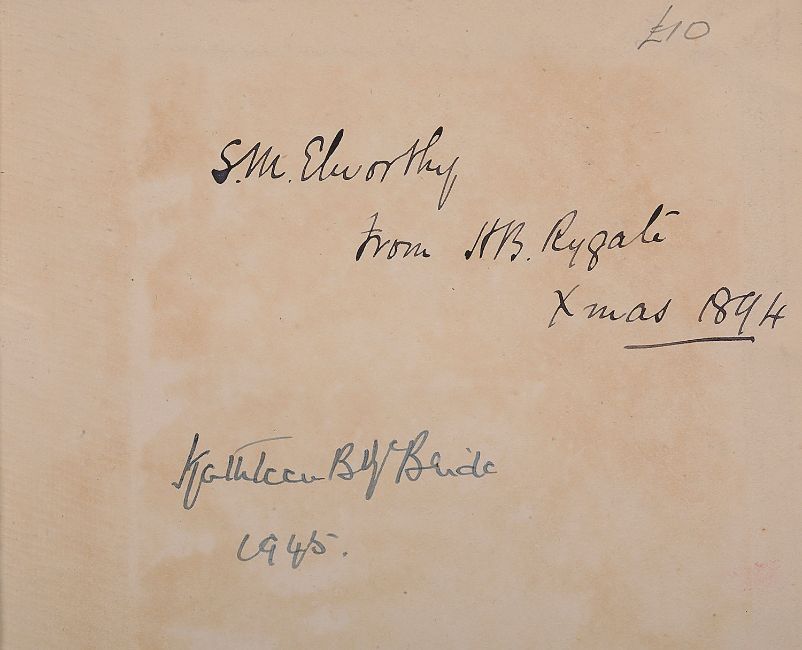 £10
S.M. Elworthy
From H.B. Rygate
Xmas 1894
Kathleen B. McBride
1945.